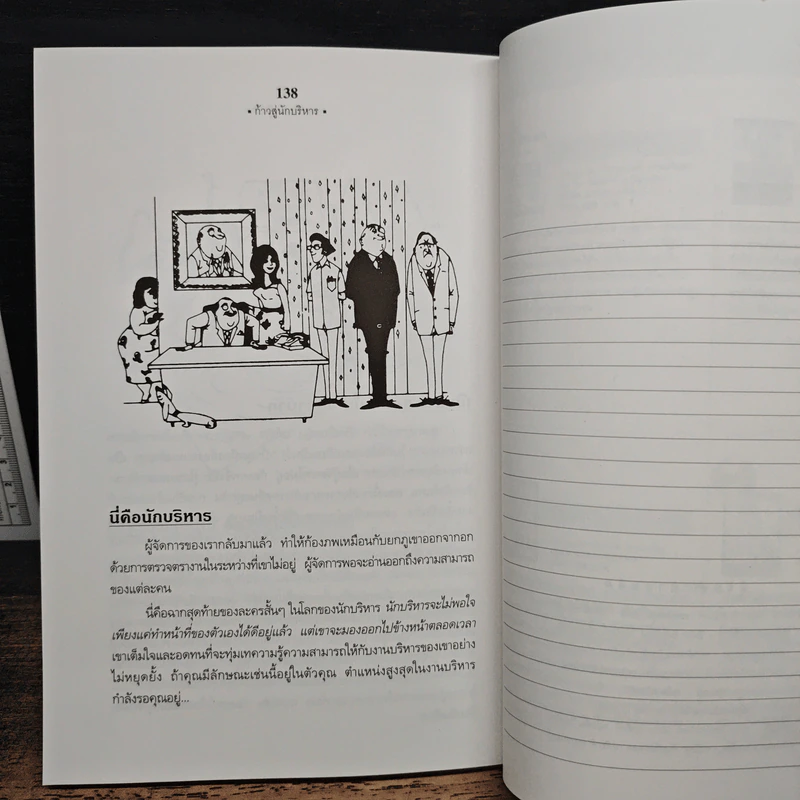 138
• ก้าวสู่นักบริหาร •
นี่คือนักบริหาร
ผู้จัดการของเรากลับมาแล้ว ทำให้ก้องภพเหมือนกับยกภูเขาออกจากอก
ด้วยการตรวจตรางานในระหว่างที่เขาไม่อยู่ ผู้จัดการพอจะอ่านออกถึงความสามารถ
ของแต่ละคน
นี่คือฉากสุดท้ายของละครสั้นๆ ในโลกของนักบริหาร นักบริหารจะไม่พอใจ
เพียงแค่ทำหน้าที่ของตัวเองได้ดีอยู่แล้ว แต่เขาจะมองออกไปข้างหน้าตลอดเวลา
เขาเต็มใจและอดทนที่จะทุ่มเทความรู้ความสามารถให้กับงานบริหารของเขาอย่าง
ไม่หยุดยั้ง ถ้าคุณมีลักษณะเช่นนี้อยู่ในตัวคุณ ตำแหน่งสูงสุดในงานบริหาร
กำลังรอคุณอยู่...